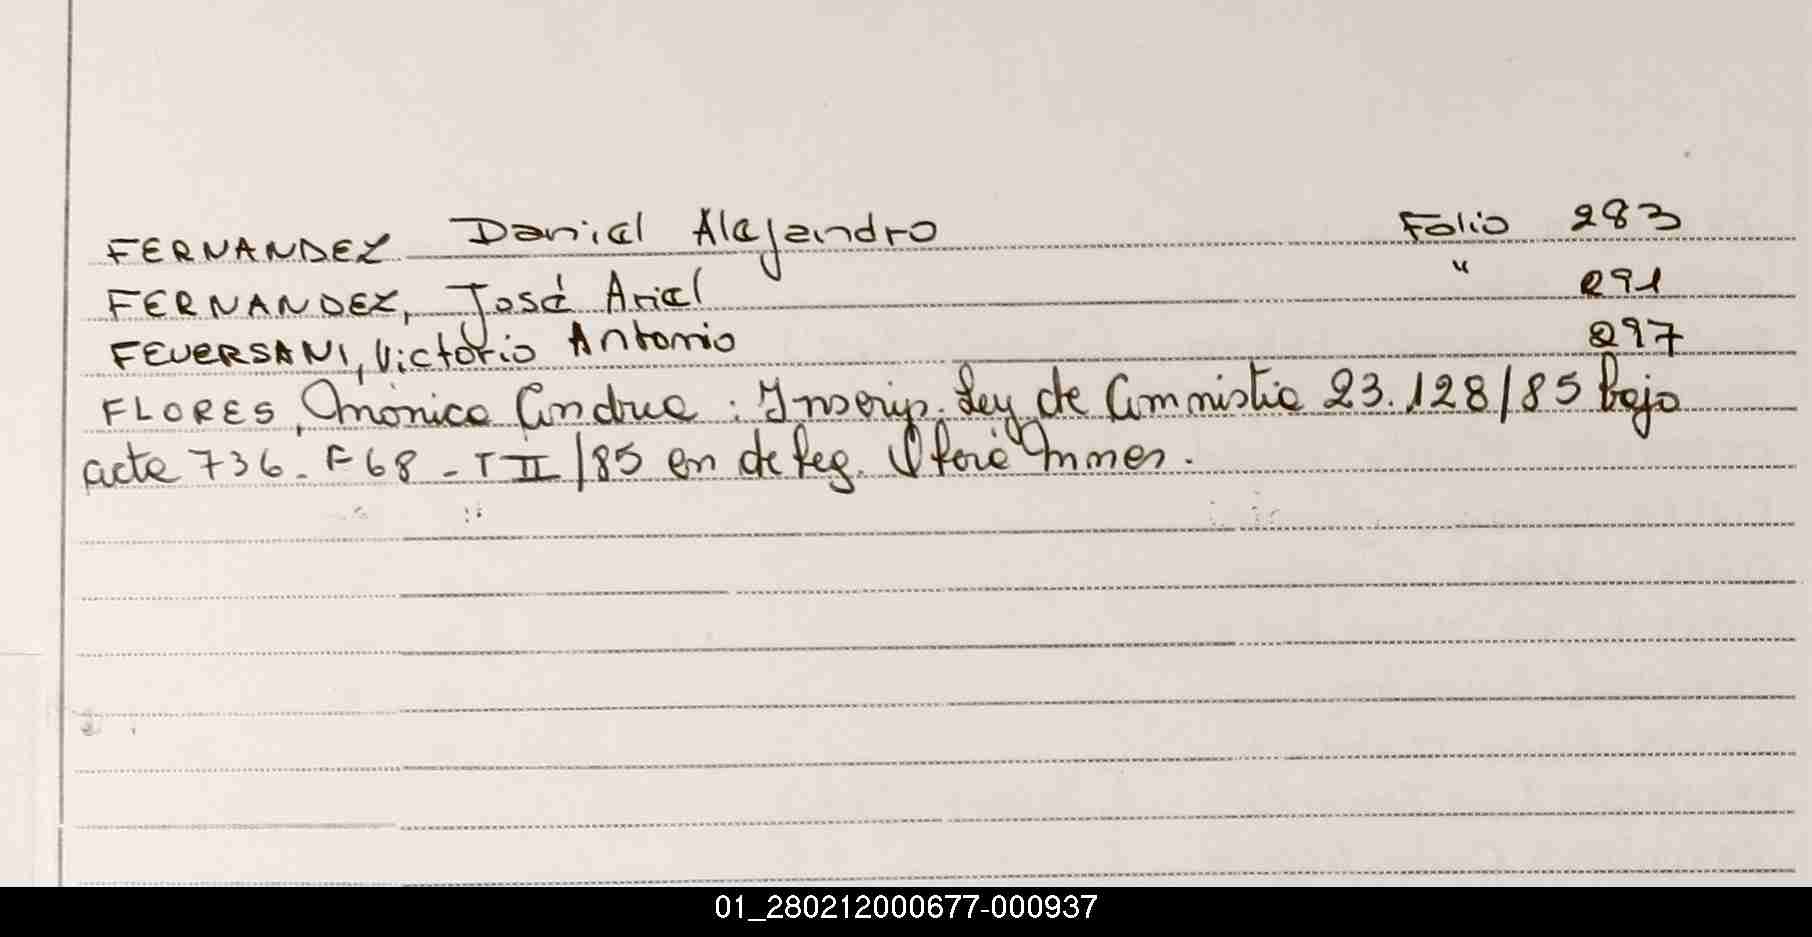 FERNANDEZ Daniel Alejandro Folio 283
FERNANDEZ, José Ariel " 291
FEUERSANI, Victorio Antonio 297
FLORES, Mónica Andrea: Inscrip. Ley de Ammistia 23.128/85 bajo
acte 736 - F 68 - T II/85 en deleg.
01_280212000677-000937